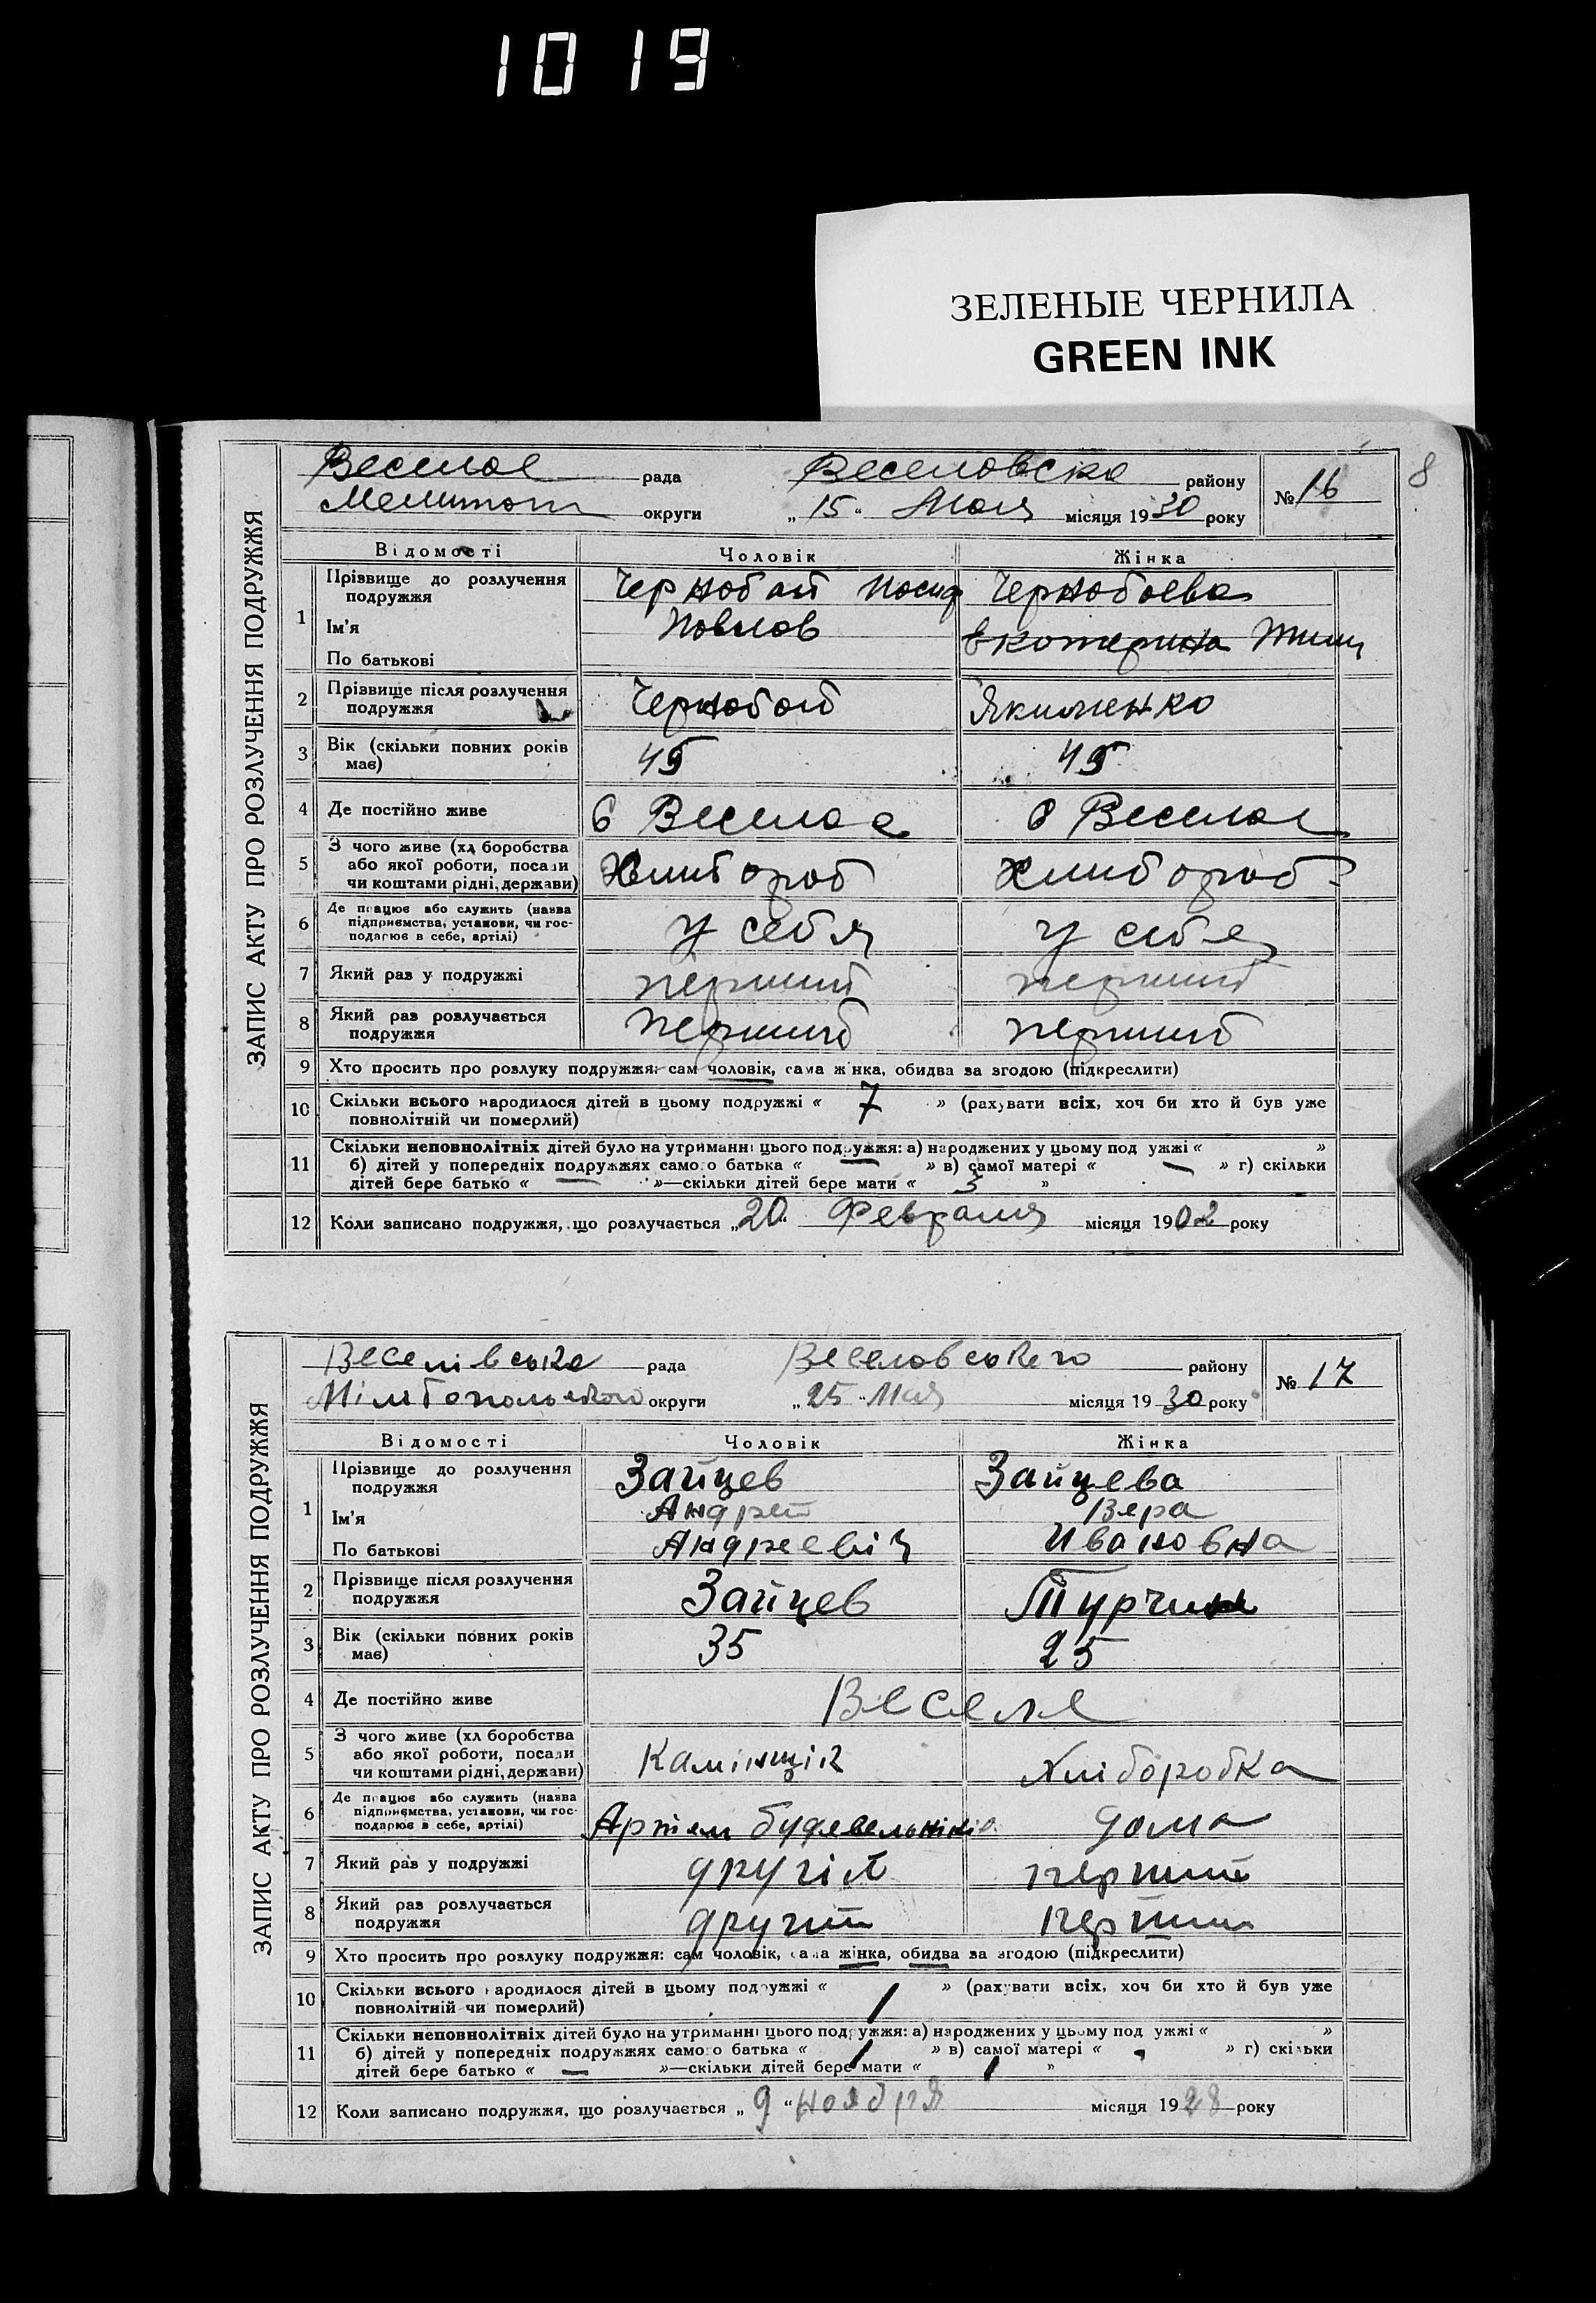 1019
ЗЕЛЕНЫЕ ЧЕРНИЛА
GREEN INK
8
ЗАПИС АКТУ ПРО РОЗЛУЧЕННЯ ПОДРУЖЖЯ
Веселое рада Веселовска району № 16
Мелитоп округи „15“ Мая місяця 1930 року
Відомості Чоловік Жінка
1 Прізвище до розлучення подружжя Чернобай Иосиф Чернобаева
Ім'я Павлов Екатерина Тим
По батькові
2 Прізвище після розлучення подружжя Чернобай Якименко
3 Вік (скільки повних років має) 45 45
4 Де постійно живе в Веселое в Веселое
5 З чого живе (хл боробства або якої роботи, посади чи коштами рідні, держави) Хлибороб Хлибороб
6 Де працює або служить (назва підприємства, установи, чи господарює в себе, артілі) у себя у себя
7 Який раз у подружжі перший перший
8 Який раз розлучається подружжя перший перший
9 Хто просить про розлуку подружжя: сам чоловік, сама жінка, обидва за згодою (підкреслити)
10 Скільки всього народилося дітей в цьому подружжі « 7 » (рахувати всіх, хоч би хто й був уже
повнолітній чи померлий)
11 Скільки неповнолітніх дітей було на утриманні цього подружжя: а) народжених у цьому под ужжі « »
б) дітей у попередніх подружжях самого батька « — » в) самої матері « — » г) скільки
дітей бере батько « — »—скільки дітей бере мати « 3 »
12 Коли записано подружжя, що розлучається „20“ Февраля місяця 1902 року
ЗАПИС АКТУ ПРО РОЗЛУЧЕННЯ ПОДРУЖЖЯ
Веселівська рада Веселовського району № 17
округи „25“ Мая місяця 1930 року
Відомості Чоловік Жінка
1 Прізвище до розлучення подружжя Зайцев Зайцева
Ім'я Андрей Вера
По батькові Андреевіч Ивановна
2 Прізвище після розлучення подружжя Зайцев Турчин
3 Вік (скільки повних років має) 35 25
4 Де постійно живе Веселе
5 З чого живе (хл боробства або якої роботи, посади чи коштами рідні, держави) Камінщік Хліборобка
6 Де працює або служить (назва підприємства, установи, чи господарює в себе, артілі) Артем дома
7 Який раз у подружжі другій перший
8 Який раз розлучається подружжя другий перший
9 Хто просить про розлуку подружжя: сам чоловік, сама жінка, обидва за згодою (підкреслити)
10 Скільки всього народилося дітей в цьому подружжі « 1 » (рахувати всіх, хоч би хто й був уже
повнолітній чи померлий)
11 Скільки неповнолітніх дітей було на утриманні цього подружжя: а) народжених у цьому под ужжі « »
б) дітей у попередніх подружжях самого батька « 1 » в) самої матері « - » г) скільки
дітей бере батько « — »—скільки дітей бере мати « 1 »
12 Коли записано подружжя, що розлучається „9“ ноября місяця 1928 року